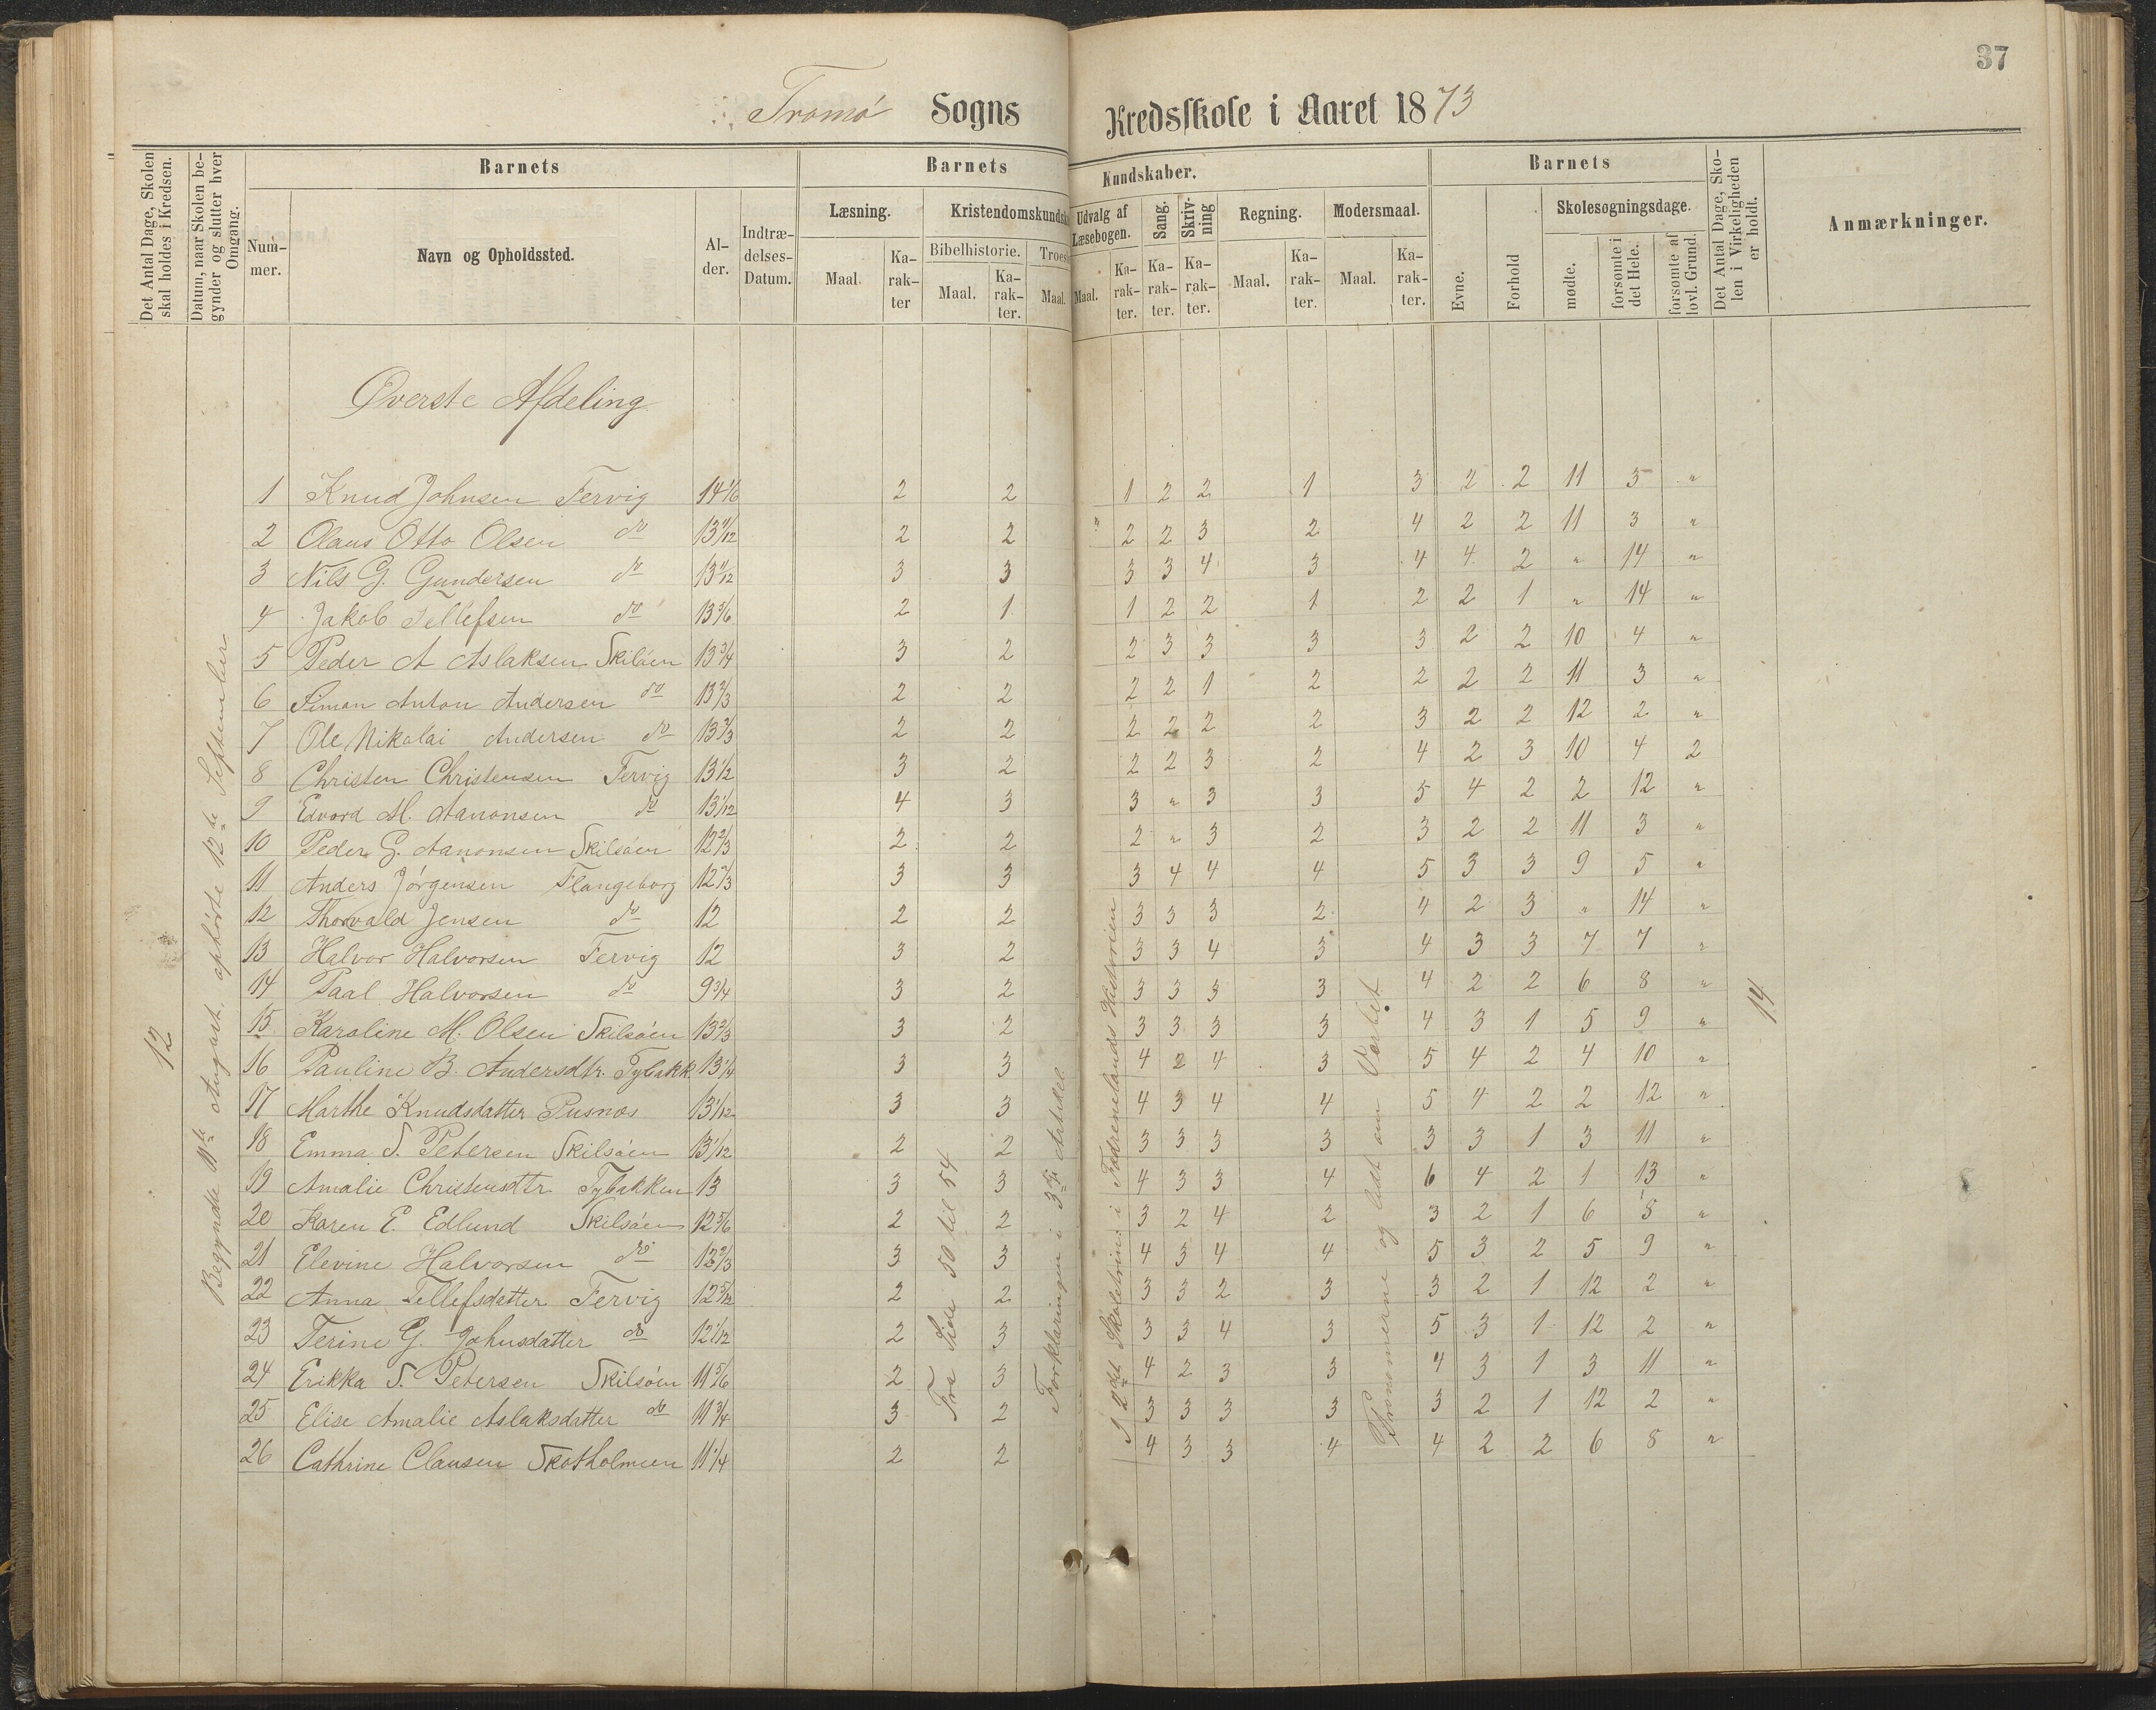 37
Tromø Sogns Kredsskole i Aaret 1873
Det Antal Dage, Skolen skal holdes i Kredsen.
Datum, naar Skolen begynder og slutter hver Omgang.
Barnets
Nummer.
Navn og Opholdssted.
Alder.
Indtrædelses-Datum.
Barnets Kundskaber.
Læsning.
Maal.
Karakter
Kristendomskundsk
Bibelhistorie.
Maal.
Karakter.
Troes
Maal.
Udvalg af Læsebogen.
Maal.
Karakter.
Sang.
Karakter.
Skrivning
Karakter.
Regning.
Maal.
Karakter.
Modersmaal.
Maal.
Karakter.
Barnets
Evne.
Forhold
Skolesøgningsdage.
mødte.
forsømte i det Hele.
forsømte af lovl. Grund.
Det Antal Dage, Skolen i Virkeligheden er holdt.
Anmærkninger.
Øverste Afdeling
12
Begyndte 11te August, ophørte 12te September
1 Knud Johnsen Fervig 14 1/6 2 2 1 2 2 1 3 2 2 11 3 "
2 Olaus Otto Olsen do 13 11/12 2 2 2 2 3 2 4 2 2 11 3 "
3 Nils G. Gundersen do 13 11/12 3 3 3 3 4 3 4 4 2 " 14 "
4 Jakob Tellefsen do 13 5/6 2 1 1 2 2 1 2 2 1 " 14 "
5 Peder A Aslaksen Skilsøen 13 3/4 3 2 2 3 3 3 3 2 2 10 4 "
6 Simon Anton Andersen do 13 2/3 2 2 2 2 1 2 2 2 2 11 3 "
7 Ole Nikolai Andersen do 13 2/3 2 2 2 2 2 2 3 2 2 12 2 "
8 Christen Christensen Fervig 13 1/2 3 2 2 2 3 2 4 2 3 10 4 2
9 Edvard M. Aanonsen do 13 1/12 4 3 3 " 3 3 5 4 2 2 12 "
10 Peder G. Aanonsen Skilsøen 12 2/3 2 2 2 " 3 2 3 2 2 11 3 "
11 Anders Jørgensen Flangeborg 12 2/3 3 3 3 4 4 4 5 3 3 9 5 "
12 Thorvald Jensen do 12 2 2 3 3 3 2 4 2 3 " 14 "
13 Halvor Halvorsen Fervig 12 3 2 3 3 4 3 4 3 3 7 7 "
14 Paal Halvorsen do 9 3/4 3 2 3 3 3 3 4 2 2 6 8 "
15 Karoline M. Olsen Skilsøen 13 2/3 3 2 3 3 3 3 4 3 1 5 9 "
16 Pauline B. Andersdtr. Tybakk. 13 1/4 3 3 4 2 4 3 5 4 2 4 10 "
17 Marthe Knudsdatter Pusnæs 13 1/12 3 3 4 3 4 4 5 4 2 2 12 "
18 Emma S. Petersen Skilsøen 13 1/12 2 2 3 3 3 3 3 3 1 3 11 "
19 Amalie Christensdtr Tybakken 13 3 3 4 3 3 4 6 4 2 1 13 "
20 Karen E. Edlund Skilsøen 12 5/6 2 2 3 2 4 2 3 2 1 6 8 "
21 Elevine Halvorsen do 12 2/3 3 3 4 3 4 4 5 3 2 5 9 "
22 Anna Tellefsdatter Fervig 12 5/12 2 2 3 3 2 3 3 2 1 12 2 "
23 Terine G. Johnsdatter do 12 1/12 2 3 3 3 4 3 5 3 1 12 2 "
24 Erikka S. Petersen Skilsøen 11 5/6 2 3 4 2 3 3 4 3 1 3 11 "
25 Elise Amalie Aslaksdatter do 11 3/4 3 2 3 3 3 3 3 2 1 12 2 "
26 Cathrine Clausen Skotholmen 11 1/4 2 2 4 3 3 4 4 2 2 6 8 "
Fra Side 50 til 54
Forklaringen i 3die Artikel
I 2det Skoletrin: i Fædrenelands Historien
Pronomerne og lidt om Verbet
14